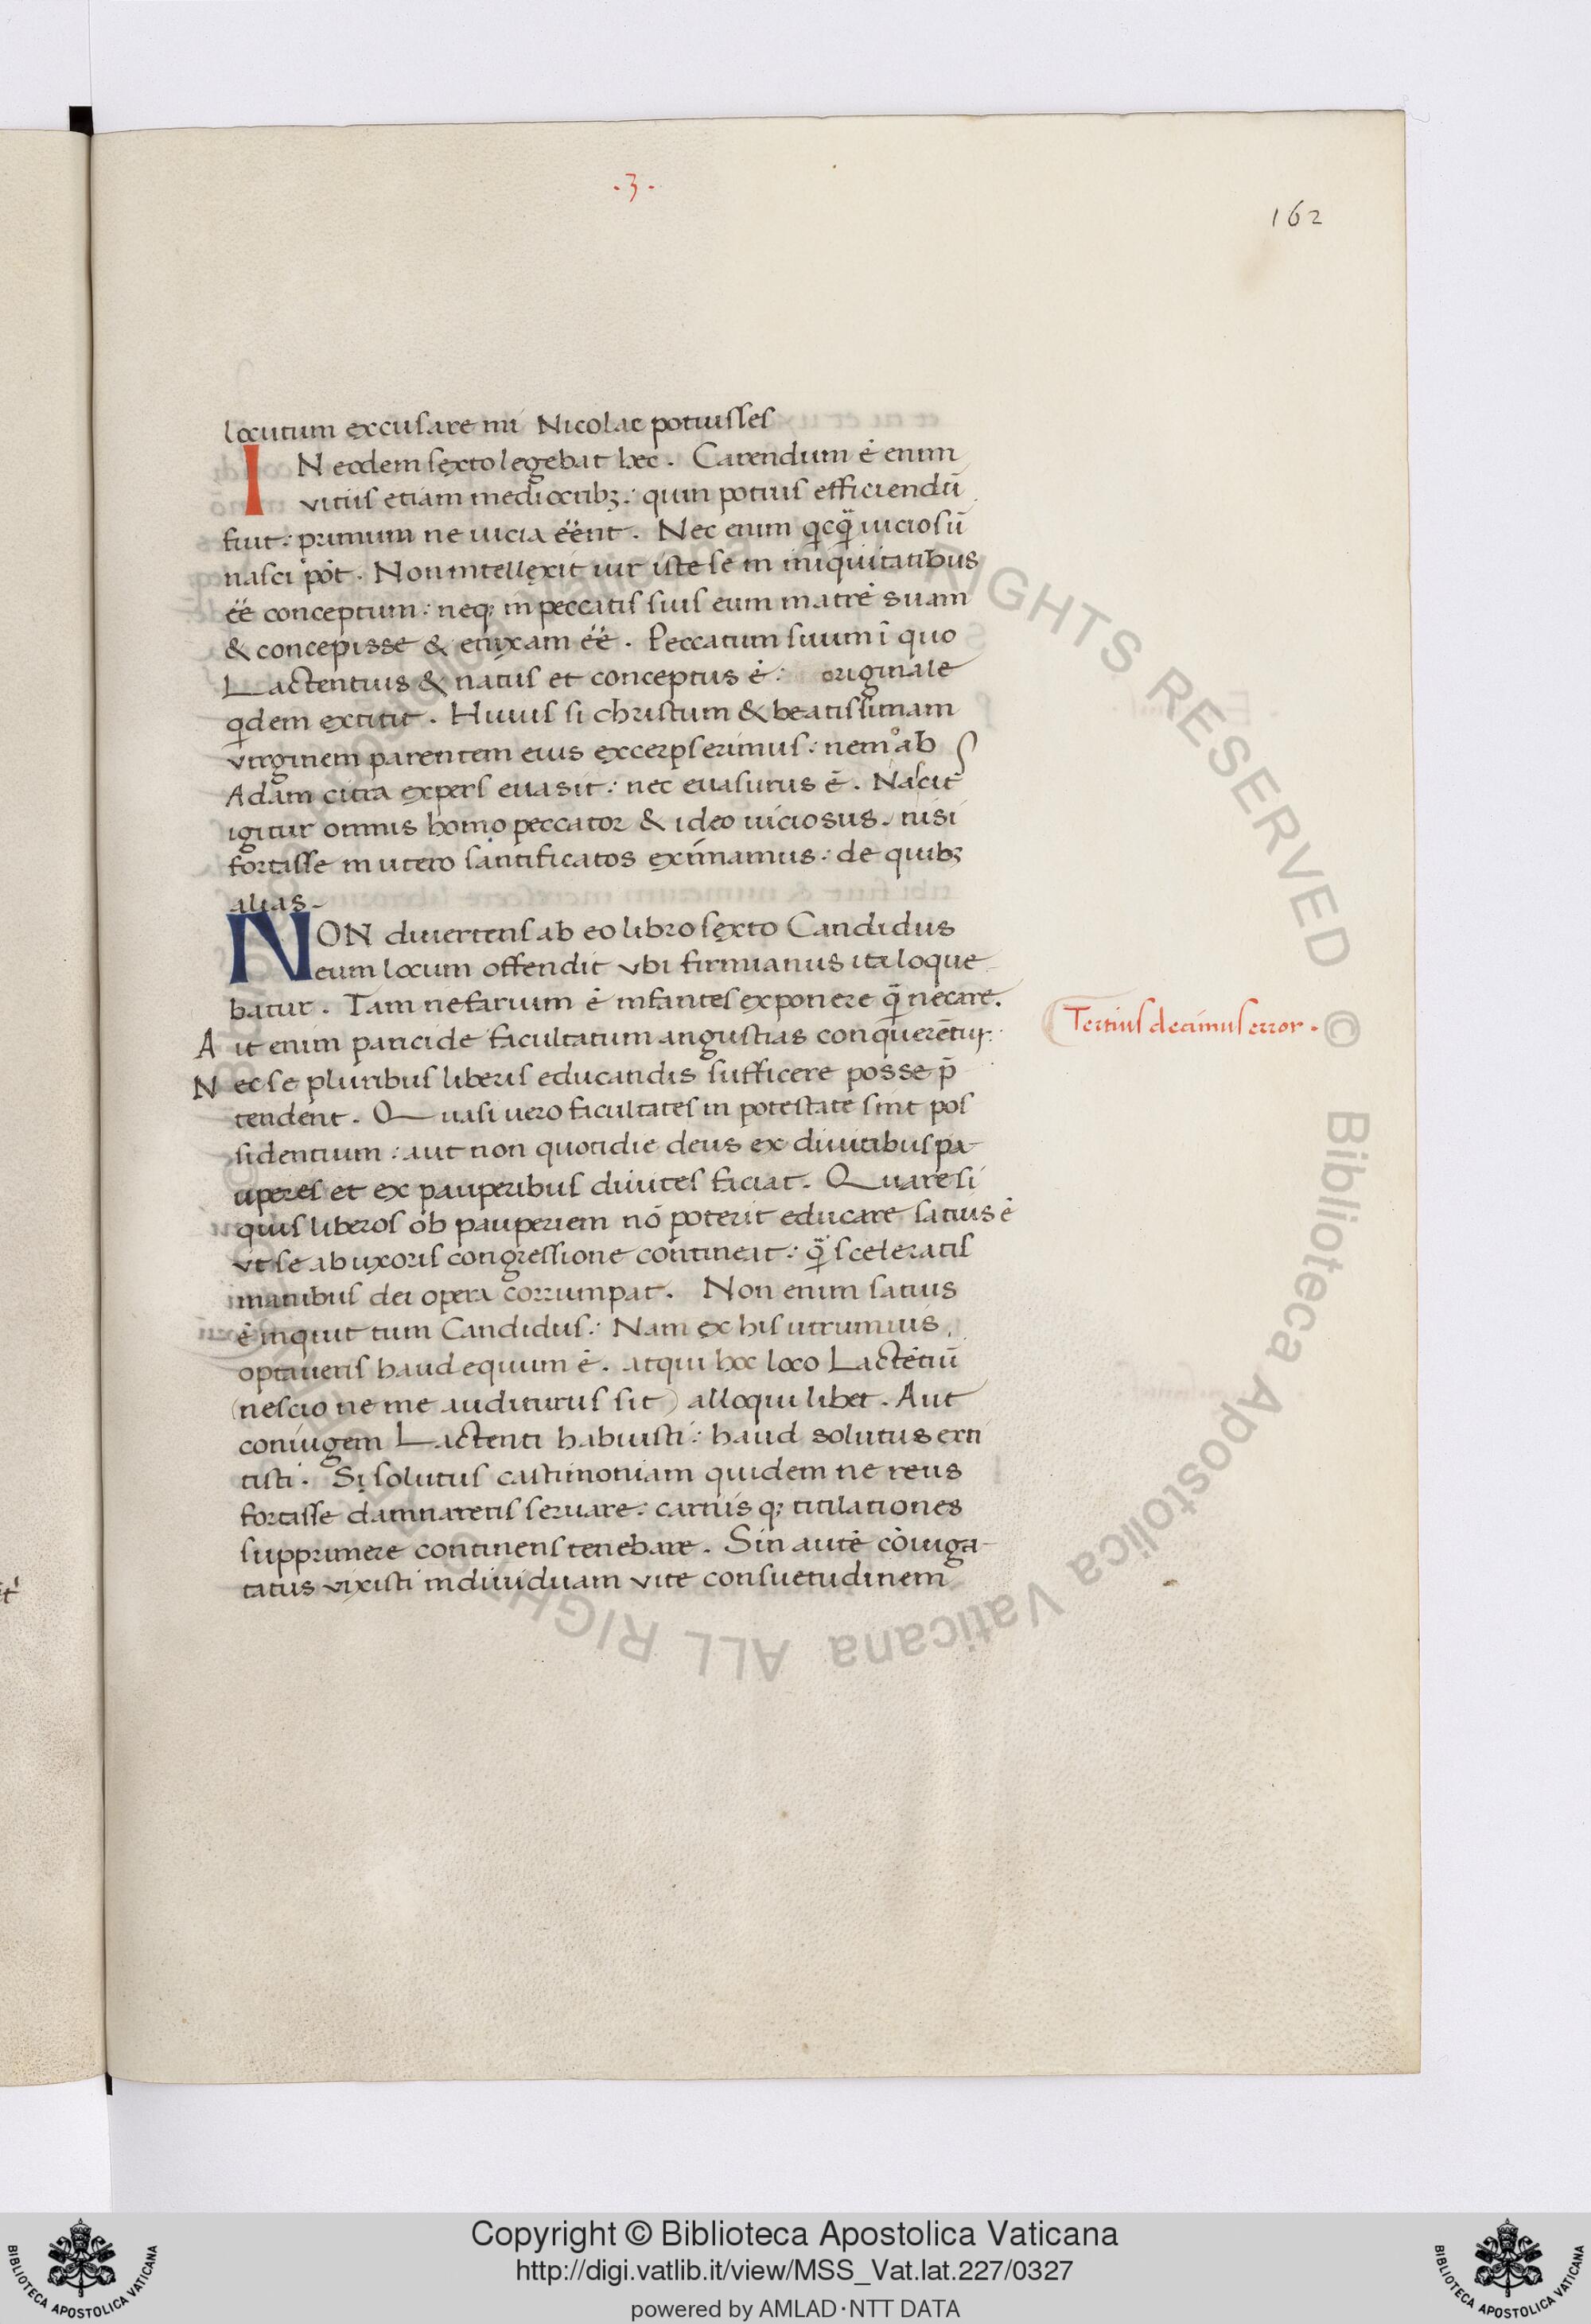 .3.
162
locutum excusare mi Nicolae potuisses
IN eodem sexto legebat hec. Carendum ē enim
vitiis etiam mediocribꝫ: quin potius efficiendū
fuit: primum ne uicia ēēnt. Nec enim qicq̄ uiciosū
nasci pōt. Non intellexit uir iste se in iniquitatibus
ēē conceptum: neqꝫ in peccatis suis eum matrē suam
& concepisse & enixam ēē. Peccatum suum ī quo
Lactentius & natus et conceptus ē: originale
qidem extitit. Huius si christum & beatissimam
virginem parentem eius excerpserimus: nemo ab
Adam citra expers euasit: nec euasurus ē. Nascit᷑
igitur omnis homo peccator & ideo uiciosus. nisi
fortasse in utero santificatos eximamus: de quibꝫ
alias.
NON diuertens ab eo libro sexto Candidus
eum locum offendit vbi firmianus ita loque
batur. Tam nefarium ē infantes exponere q̄ necare.
Tertius decimus error.
A it enim paricide facultatum angustias conquerētur:
N ec se pluribus liberis educandis sufficere posse p̄
tendent. Quasi uero facultates in potestate sint pos
sidentium: aut non quotidie deus ex diuitibus pa-
uperes et ex pauperibus diuites faciat. Quare si
quis liberos ob pauperiem nō poterit educare satius ē
vt se ab uxoris congressione contineat: q̄ sceleratis
manibus dei opera corrumpat. Non enim satius
ē inquit tum Candidus: Nam ex his utrumuis
optaueris haud equum ē. atqui hoc loco Lactētiū
(nescio ne me auditurus sit) alloqui libet. Aut
coniugem Lactenti habuisti: haud solutus exti
tisti. Si solutus castimoniam quidem ne reus
fortasse damnareris seruare: carnis qꝫ titilationes
supprimere continens tenebare. Sin autē cōiuga-
tatus vixisti indiuiduam vite consuetudinem
Copyright © Biblioteca Apostolica Vaticana
http://digi.vatlib.it/view/MSS_Vat.lat.227/0327
powered by AMLAD·NTT DATA
BIBLIOTECA APOSTOLICA VATICANA
BIBLIOTECA APOSTOLICA VATICANA